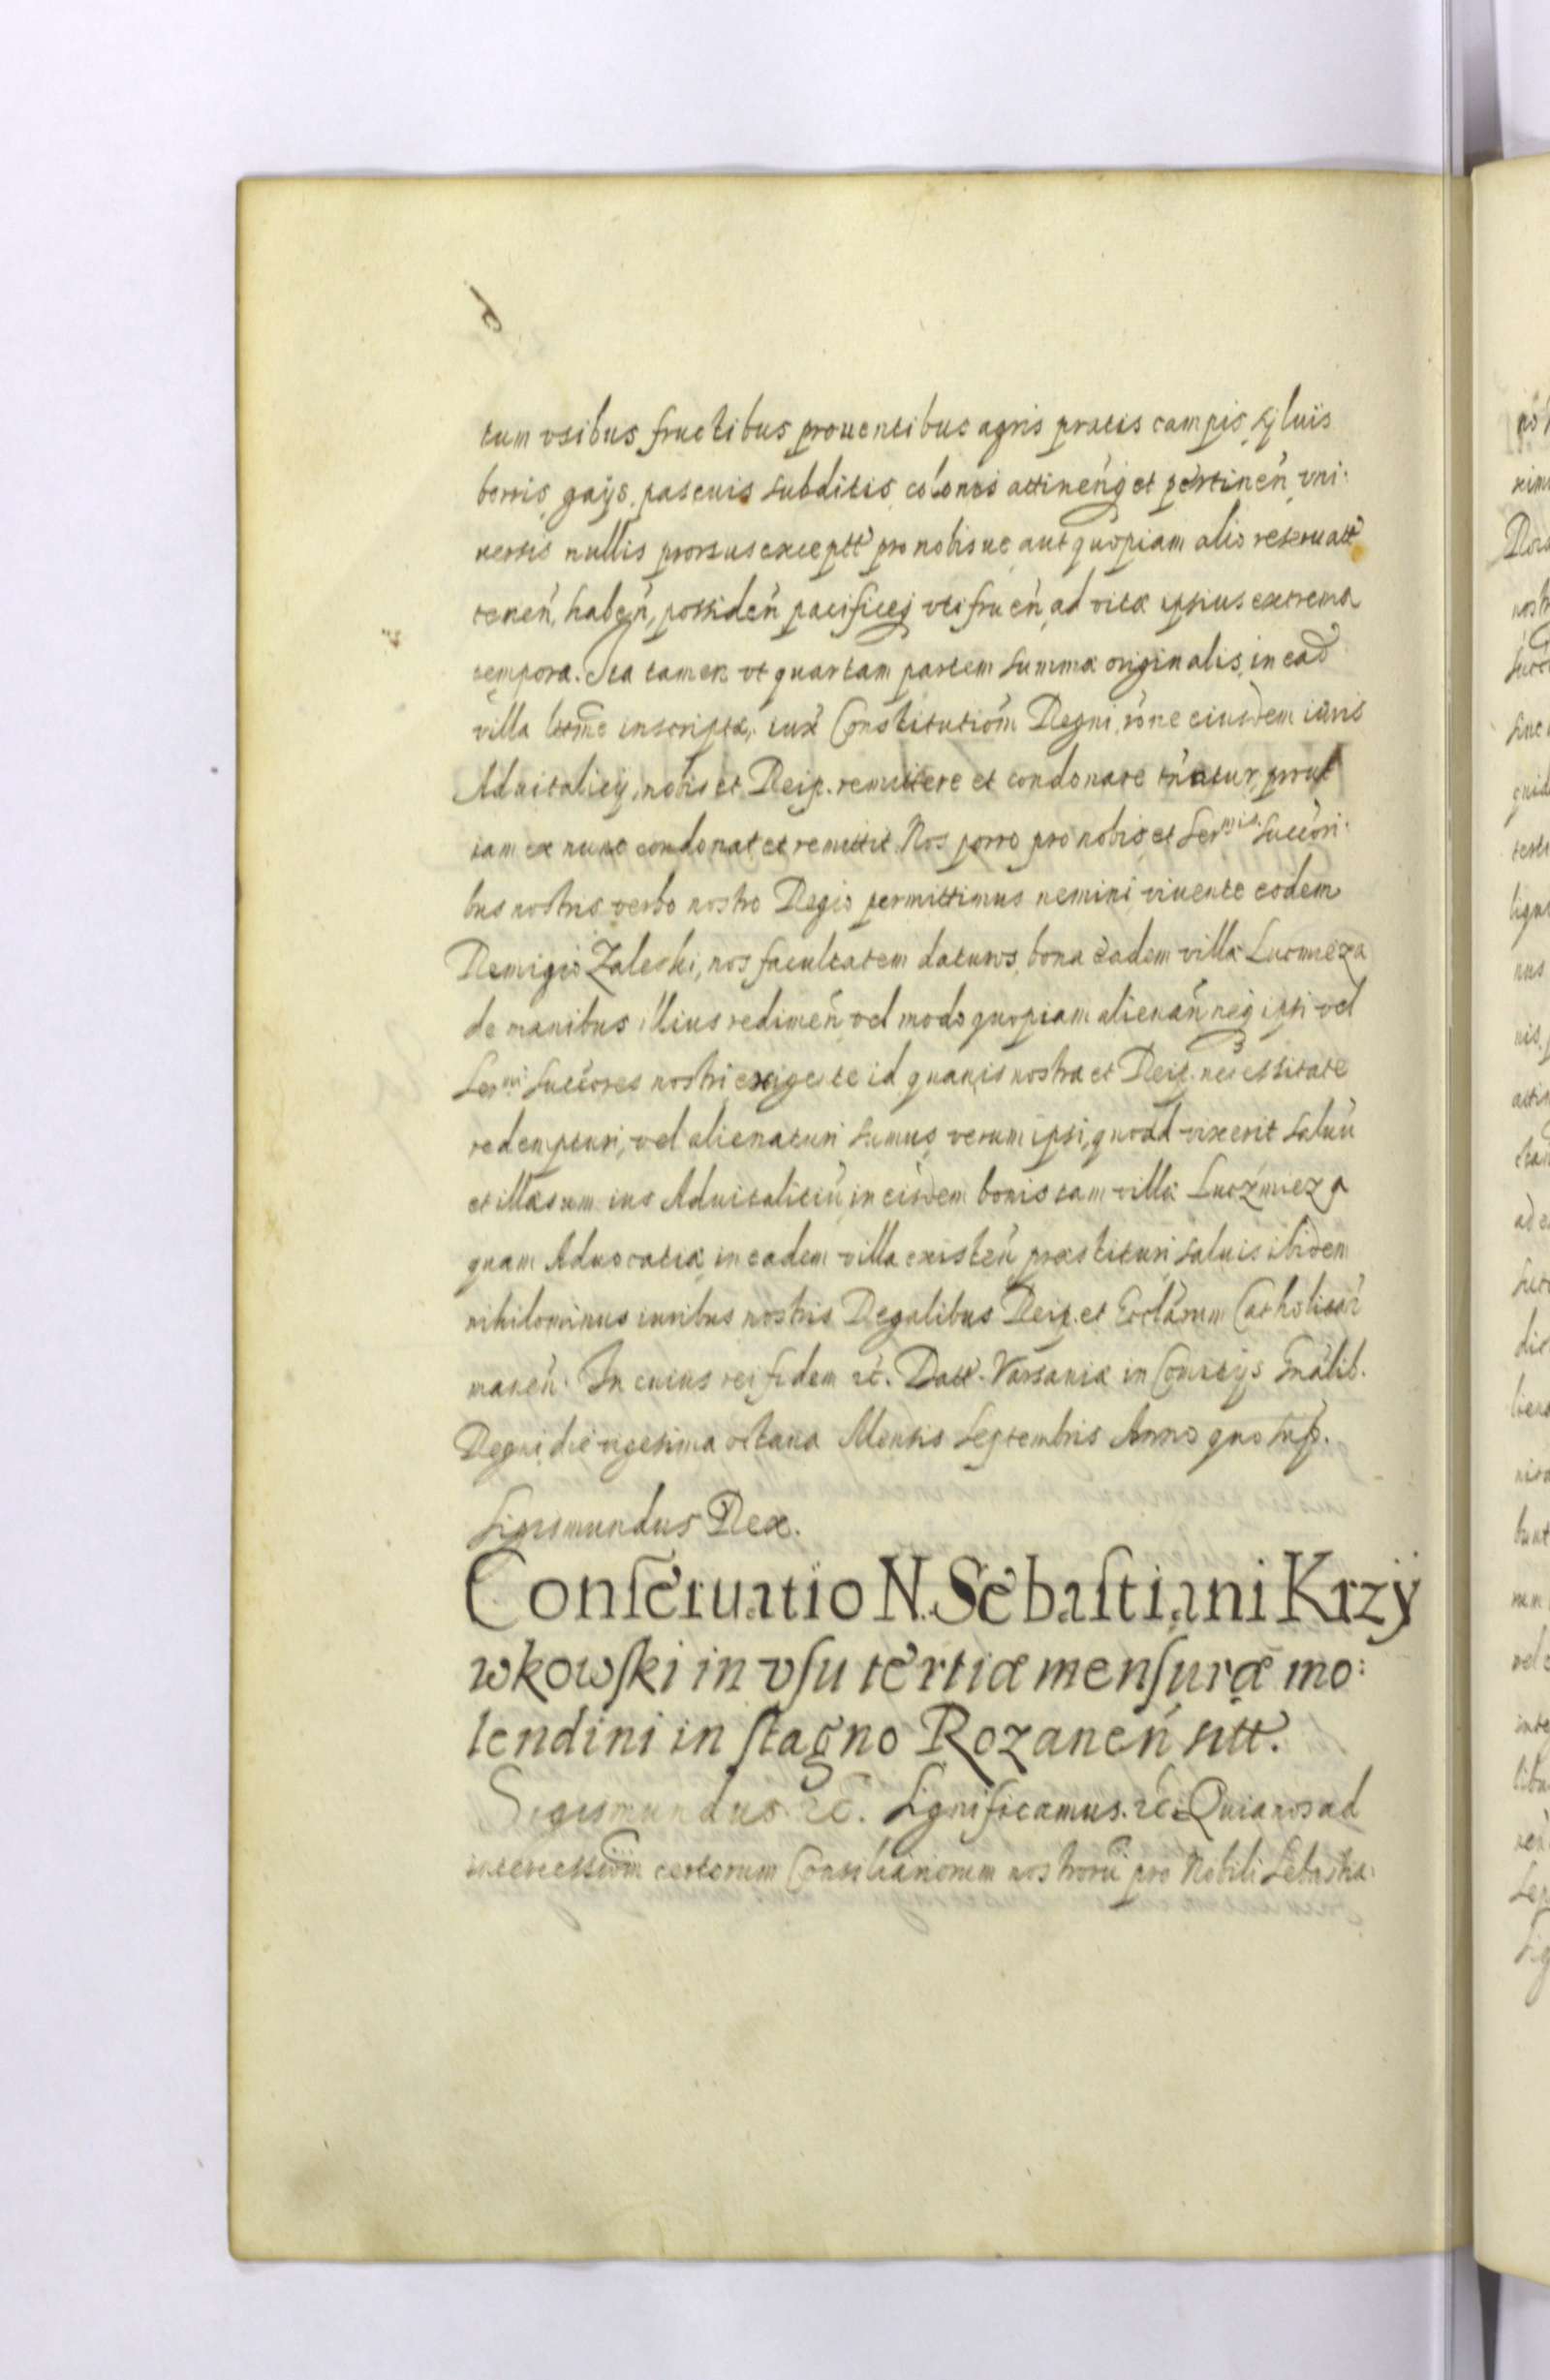 tum vsibus fructibus prouentibus agris pratis campis sÿluis
borris gaÿs pascuis subditis colonis attineń q et pertineń vni:
uersis nullis prorsus exceptt pro nobisue aut quopiam alio reseruatt
teneń, habeń, possideń pacifice q vtifrueń, ad vitæ ipsius extrema
tempora. Ita tamen vt quartam partem summæ originalis, in ead
villa inscriptæ, iux Constitutiom Regni, rõne eiusdem iuris
Aduitalicÿ, nobis et Reip. remittere et condonare tnatur, prout
iam ex nunc condonat et remittit. Nos porro pro nobis et Sermis Succori:
bus nostris verbo nostro Regio permittimus nemini viuente eodem
Remigio Zaleski, nos facultatem daturos, bona eadem villæ Lucmieza
de manibus illius redimeń vel modo quopiam alienań neq ipsi vel
Sermi Succores nostri exigente id quauis nostra et Reip. necessitate
redempturi, vel alienaturi sumus, verum ipsi, quoad vixerit saluū
et illæsum ius Aduitalitiū, in eisdem bonis tam villæ Luczmieza
quam Aduocatiæ, in eadem villa existeń præstituri, saluis ibidem
nihilominus iuribus nostris Regalibus Reip. et Ecclārum Catholicar
maneń. In cuius rei fidem ꝛc. Datt. Varsauiæ in Comitÿs Gnālib.
Regni, die vigesima octaua Mensis Septembris Anno quo sup.
Sigismundus Rex.
Conſeruatio N. Sebaſtiani Krzÿ
wkowſki in vſu tertiæ menſuræ mo:
lendini in ſtagno Rozaneń sitt.
Sigismundus ꝛc. Significamus. ꝛc. Quia nos ad
intercessiom certorum Consiliariorum nostrorū pro Nobili Sebastia: